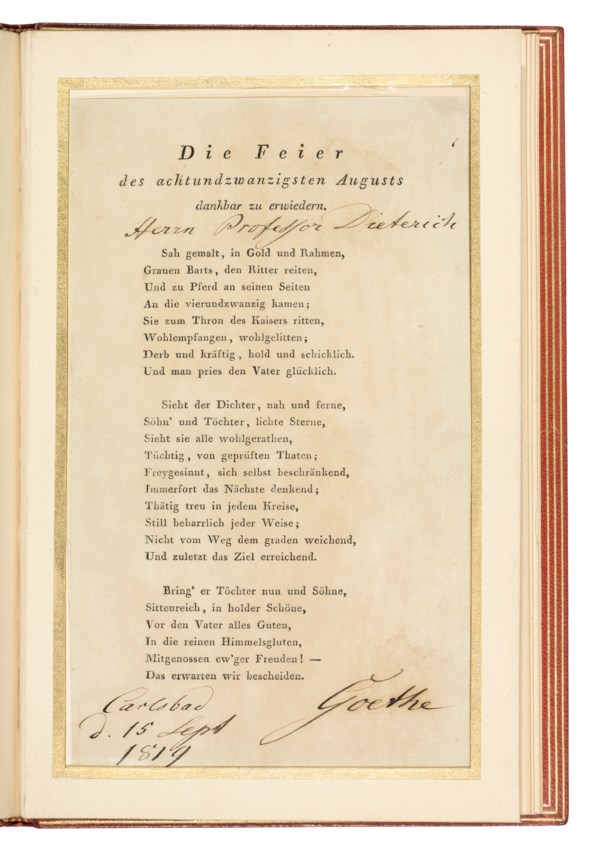 Die Feier
des achtundzwanzigsten Augusts
dankbar zu erwiedern.
Herrn Professor Dieterich
Sah gemalt, in Gold und Rahmen,
Grauen Barts, den Ritter reiten,
Und zu Pferd an seinen Seiten
An die vierundzwanzig kamen;
Sie zum Thron des Kaisers ritten,
Wohlempfangen, wohlgelitten;
Derb und kräftig, hold und schicklich.
Und man pries den Vater glücklich.
Sieht der Dichter, nah und ferne,
Söhn' und Töchter, lichte Sterne,
Sieht sie alle wohlgerathen,
Tüchtig, von geprüften Thaten;
Freygesinnt, sich selbst beschränkend,
Immerfort das Nächste denkend;
Thätig treu in jedem Kreise,
Still beharrlich jeder Weise;
Nicht vom Weg dem graden weichend,
Und zuletzt das Ziel erreichend.
Bring' er Töchter nun und Söhne,
Sittenreich, in holder Schöne,
Vor den Vater alles Guten,
In die reinen Himmelsgluten,
Mitgenossen ew'ger Freuden! —
Das erwarten wir bescheiden.
Carlsbad
d. 15 Sept
1819
Goethe